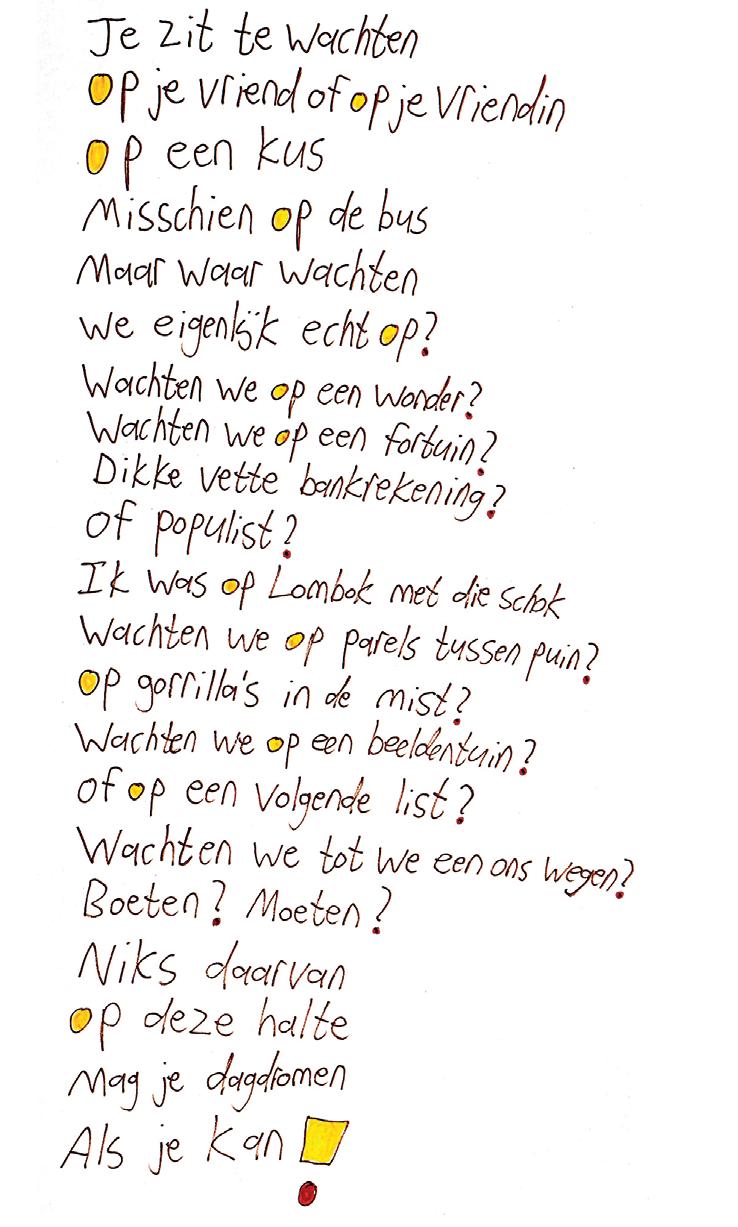 Je zit te wachten
op je vriend of op je vriendin
op een kus
Misschien op de bus
Maar waar wachten
we eigenlijk echt op?
Wachten we op een wonder?
Wachten we op een fortuin?
Dikke vette bankrekening?
of populist?
Ik was op Lombok met die schok
Wachten we op parels tussen puin?
op gorrilla's in de mist?
Wachten we op een beeldentuin?
of op een volgende list?
Wachten we tot we een ons wegen?
Boeten? Moeten?
Niks daarvan
op deze halte
Mag je dagdromen
Als je kan!